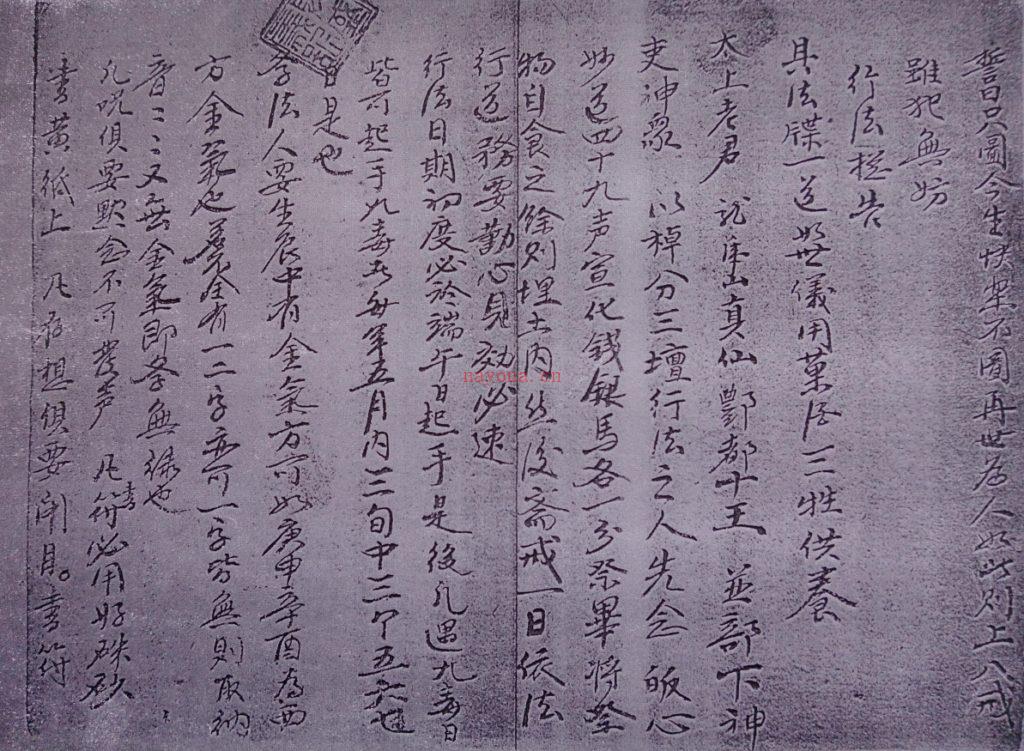 誓曰只圖今生快樂不圖再世為人如此則上八戒
雖犯無妨
行法控告
具法牒一道如世儀用菓信三牲供養
太上老君 龍虎山真仙酆都十王 並部下神
吏神眾 以棹分三壇行法之人先念皈心
妙道四十九声宣化錢銀馬各一分祭畢將祭
物自食之餘則埋土內然後斎戒一日依法
行道務要勤心見効必速
行法日期初度必於端午日起手是後凡遇九毒日
皆可起手九毒者每年五月內三旬中三个五六七
日是也
學法人要生辰中有金氣方可如庚申辛酉為西
方金氣也若全有一二字亦可一字皆無則取納
音二二又無金氣即學無緣也
凡呪俱要默念不可發声 凡書符必用好硃砂
書黃紙上 凡存想俱要閉目。書符
nayona.cn